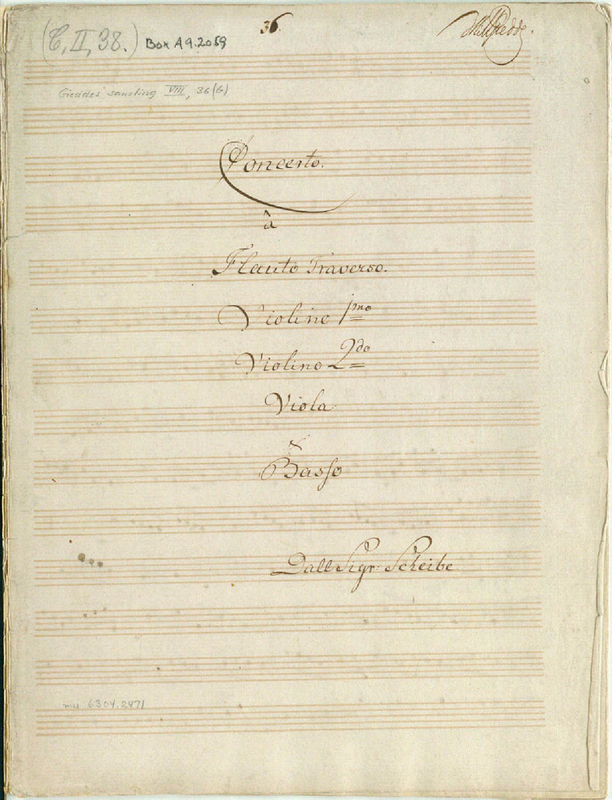 36.
(C, II, 38.) Box A9.2059
Gieddes samling VIII, 36 (6)
Concerto.
à
Flauto Traverso.
Violino 1mo
Violino 2do
Viola
&
Basso
Dall Sigr Scheibe
mu 6304.2471